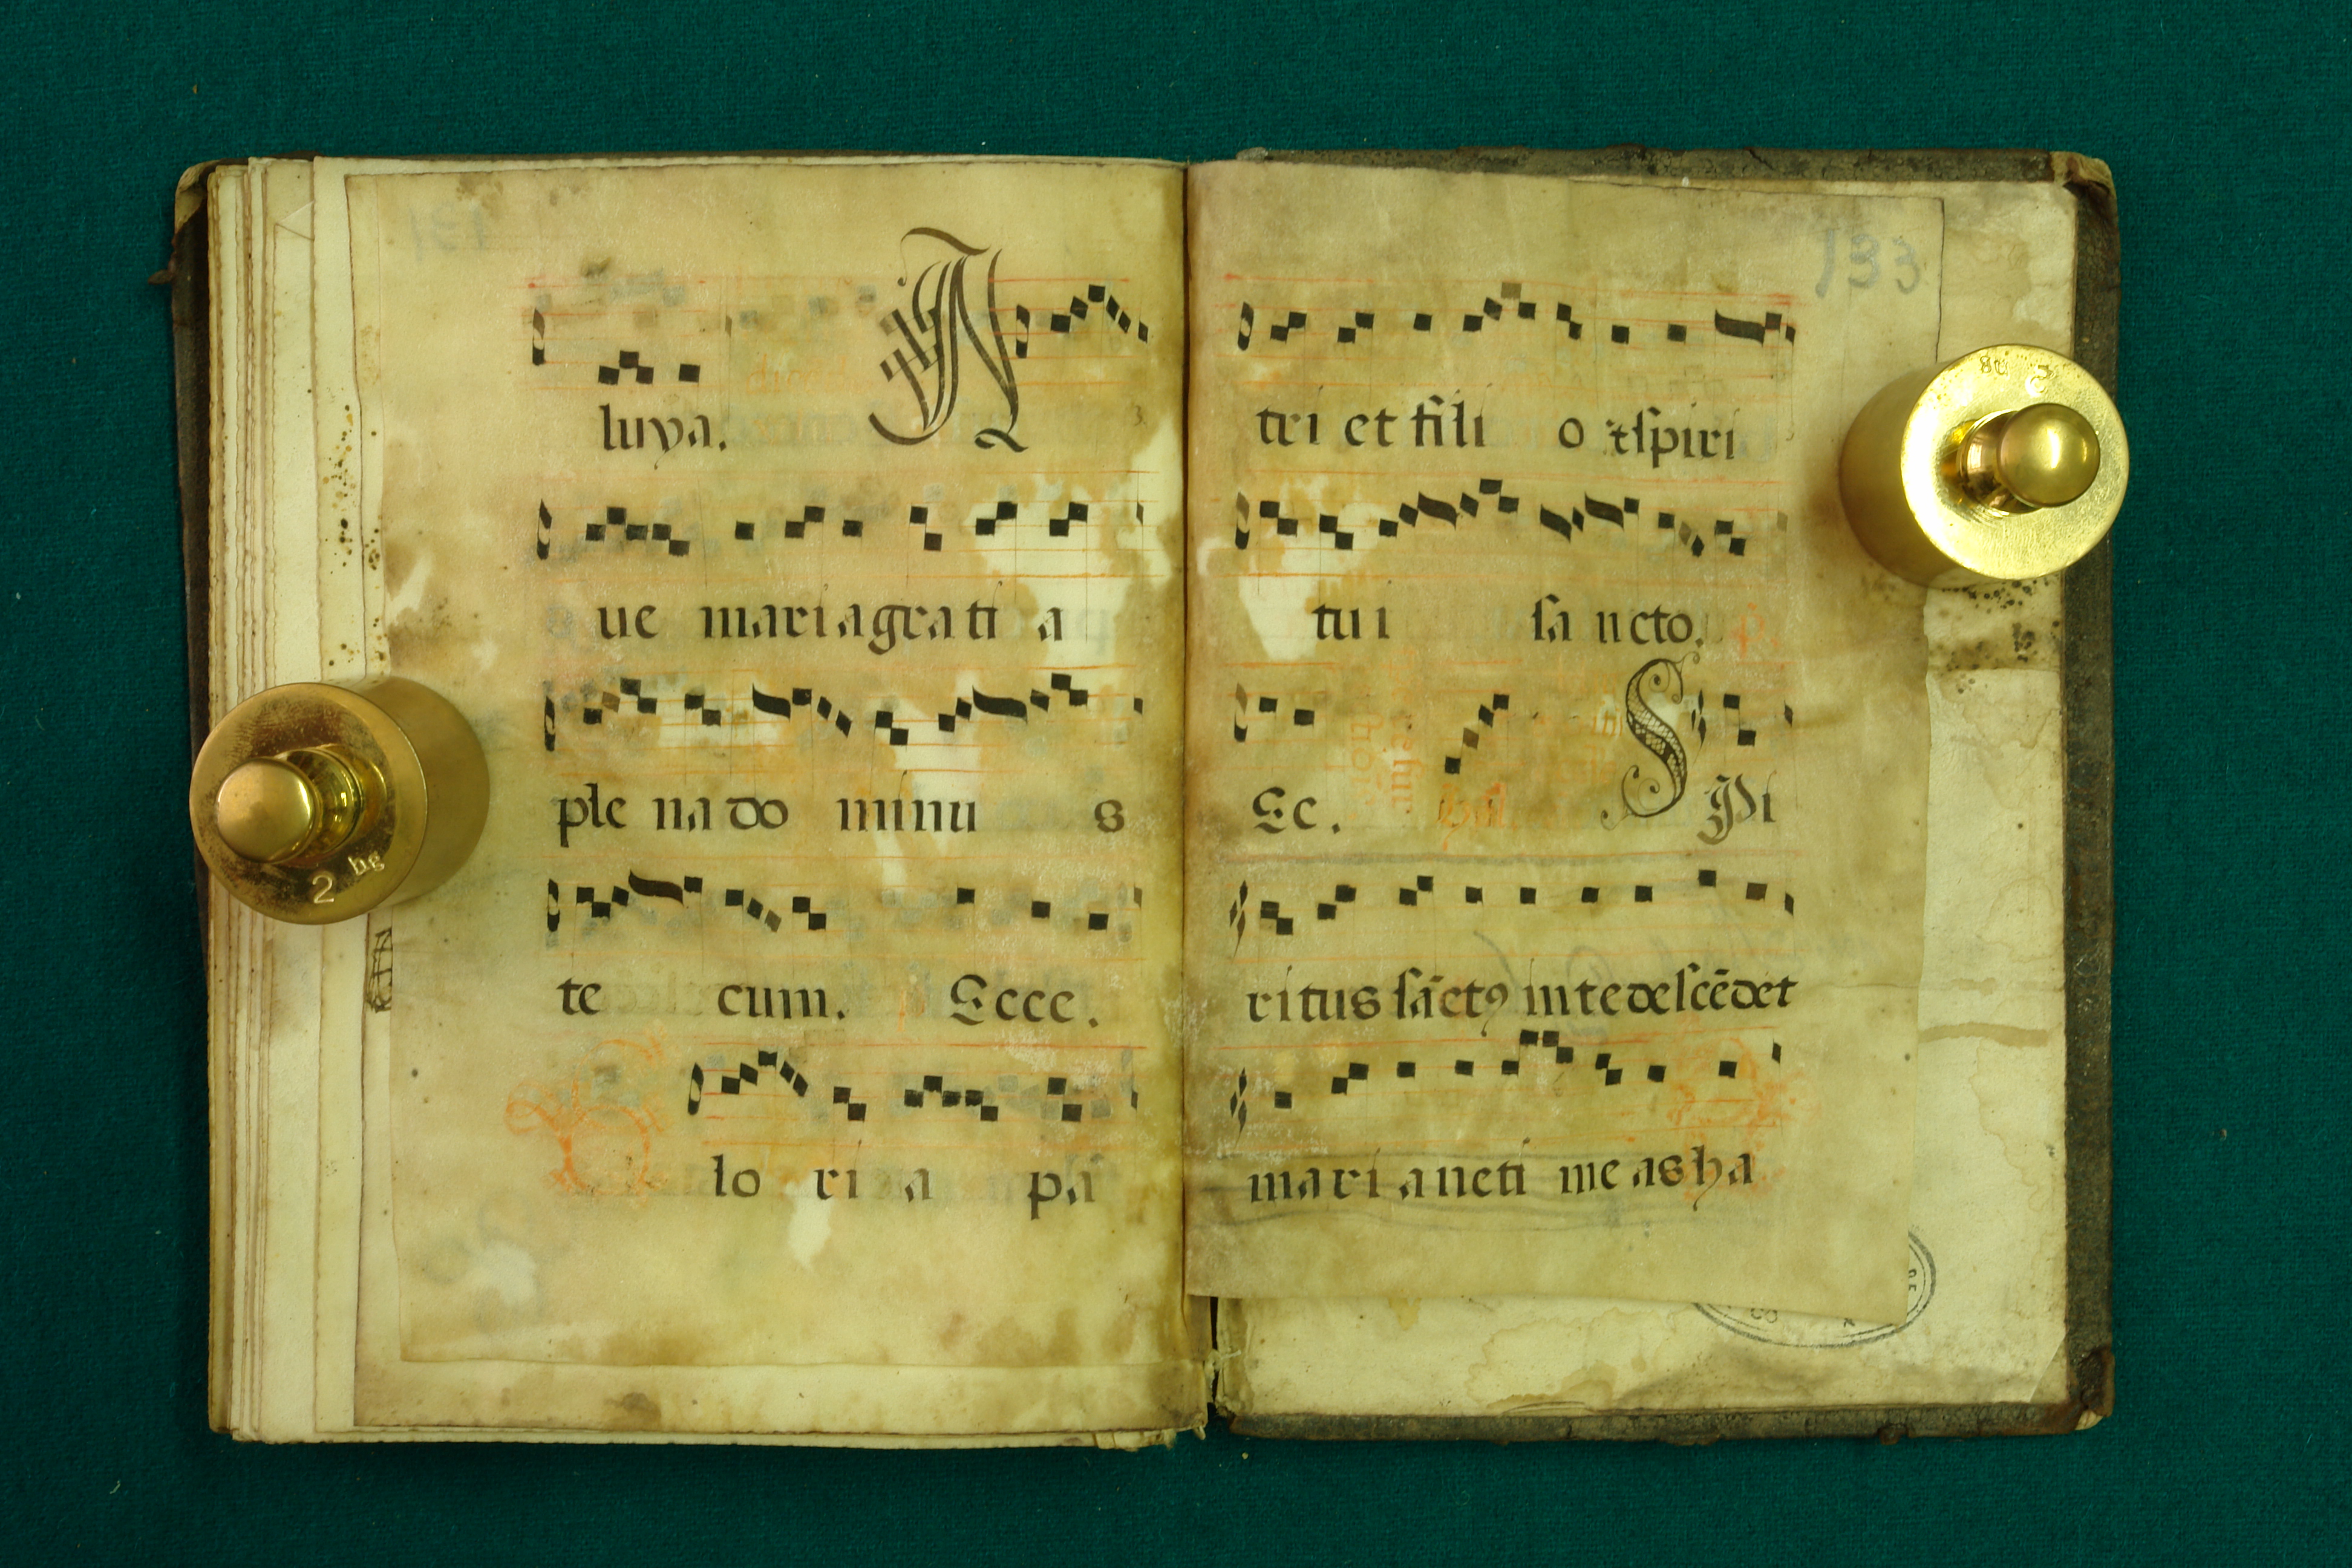 luya. A
ue maria grati a
ple na do minu s
te cum. Ecce.
G lo ri a pa
133
tri et fili o et spiri
tu i sa ncto.
Ec. S Pi
ritus sāctꝯ in te descēdet
maria ne ti meas ha
2 hg